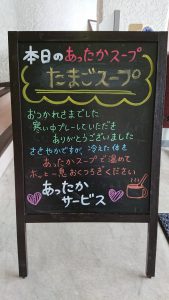 本日のあったかスープ
たまごスープ
おつかれさまでした
寒い中プレーしていただき
ありがとうございました
ささやかですが、冷えた体を
あったかスープで温めて
ホッと一息おくつろぎください
あったか
サービス